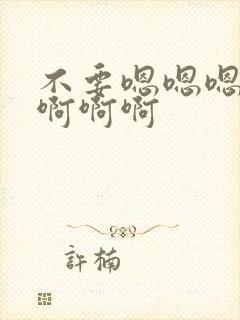 不要嗯嗯嗯
啊啊啊
許楠